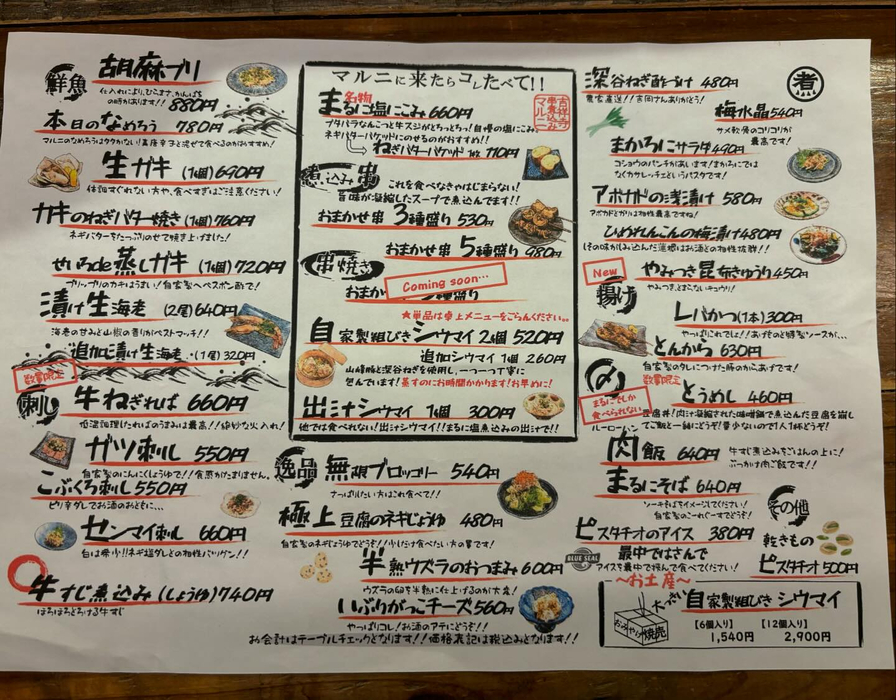 鮮魚
胡麻ブリ
仕入れにより、ひらまさ、かんぱち
の時があります!! 880円
本日のなめろう 780円
マルニのなめろうはクタかない!真唐辛子と混ぜて食べるのがおすすめ!
生ガキ (1個)690円
体調すぐれない方や、食べすぎはご注意ください!
カキのねぎバター焼き (1個)760円
ネギバターをたっぷりのせて焼き上げました!
せいろde蒸しガキ (1個)720円
プリップリのカキはうまい!自家製ペペスポン酢で!
漬け生海老 (2尾)640円
海老の甘みと山椒の香りがベストマッチ!!
追加漬け生海老 (1尾)320円
数量限定
刺し
牛ねぎれば 660円
低温調理したればのうまみは最高!!絶妙な火入れ!
ガツ刺し 550円
自家製のにんにくしょうゆで!!食感がたまりません。
こぶくろ刺し 550円
ピリ辛ダレでお酒のおともに…
センマイ刺し 660円
白は希少!!ネギ塩ダレとの相性バツグン!!
牛すじ煮込み(しょうゆ)740円
ほろほろとろける牛すじ
マルニに来たらコレたべて!!
名物
まるに塩にこみ 660円
ブタバラなんこつと牛スジがとろっとろっ!自慢の塩にこみ
ネギバターバゲットにのせるのがおすすめ!!
ねぎバターバゲット 1枚 110円
煮込み串
これを食べなきゃはじまらない!
旨味が凝縮したスープで煮込んでます!!
おまかせ串 3種盛り 530円
おまかせ串 5種盛り 980円
串焼き
Coming soon…
おまか
★単品は卓上メニューをごらんください。
自家製粗びきシウマイ 2個 520円
追加シウマイ 1個 260円
山崎豚と深谷ねぎを使用し、一つ一つ丁寧に
包んでいます!蒸すのにお時間かかります!お早めに!
出汁シウマイ 1個 300円
他では食べれない!出汁シウマイ!!まるに塩煮込みの出汁で!!
逸品
無限ブロッコリー 540円
さっぱりしたい方はこれ食べて!!
極上豆腐のネギじょうゆ 480円
自家製のネギじょうゆでどうぞ!少しだけ食べたい方の冒です!
半熟ウズラのおつまみ 600円
ウズラの卵を半熟に仕上げるのが大変!
いぶりがっこチーズ 560円
やっぱりコレ!お酒のアテにどうぞ!!
お会計はテーブルチェックとなります!!価格表記は税込みとなります!!
深谷ねぎ酢づけ 480円
農家直送!!吉岡さんありがとう!
煮
梅水晶 540円
サメ軟骨のコリコリが
最高です!
まかろにサラダ 490円
コショウのパンチがあいます!まかろにでは
なくカサレッチェというパスタです!
アボカドの浅漬け 580円
アボカドとガリは相性最高ですね!
ひめれんこんの梅漬け 480円
だその味がしみ込んだ蓮根はお酒との相性抜群!!
New
やみつき昆布きゅうり 450円
やみつき、とまらないキュウリ!
揚げ
レバかつ(1本)300円
やっぱりこれでしょ!!あげものと特製ソースが…
とんから 630円
自家製のタレにつけた豚のからあげです!
〆
まるにでしか
食べられない
数量限定
とうめし 460円
豆腐丼!肉汁が凝縮された味噌鍋で煮込んだ豆腐を崩し
てご飯と一緒にどうぞ!量少ないので1人1杯どうぞ!
ルーローハン
肉飯 640円
牛すじ煮込みをごはんの上に!
ぶっかけ肉ご飯です!!
まるにそば 640円
ソーキそばをイメージしてください!
自家製のこーれーぐーすでどうぞ!
その他
ピスタチオのアイス 380円
最中ではさんで
アイスを最中で挟んで食べてください!
BLUE SEAL
乾きもの
ピスタチオ 500円
～お土産～
おみやげ焼売
大っきい
自家製粗びきシウマイ
【6個入り】 【12個入り】
1,540円 2,900円